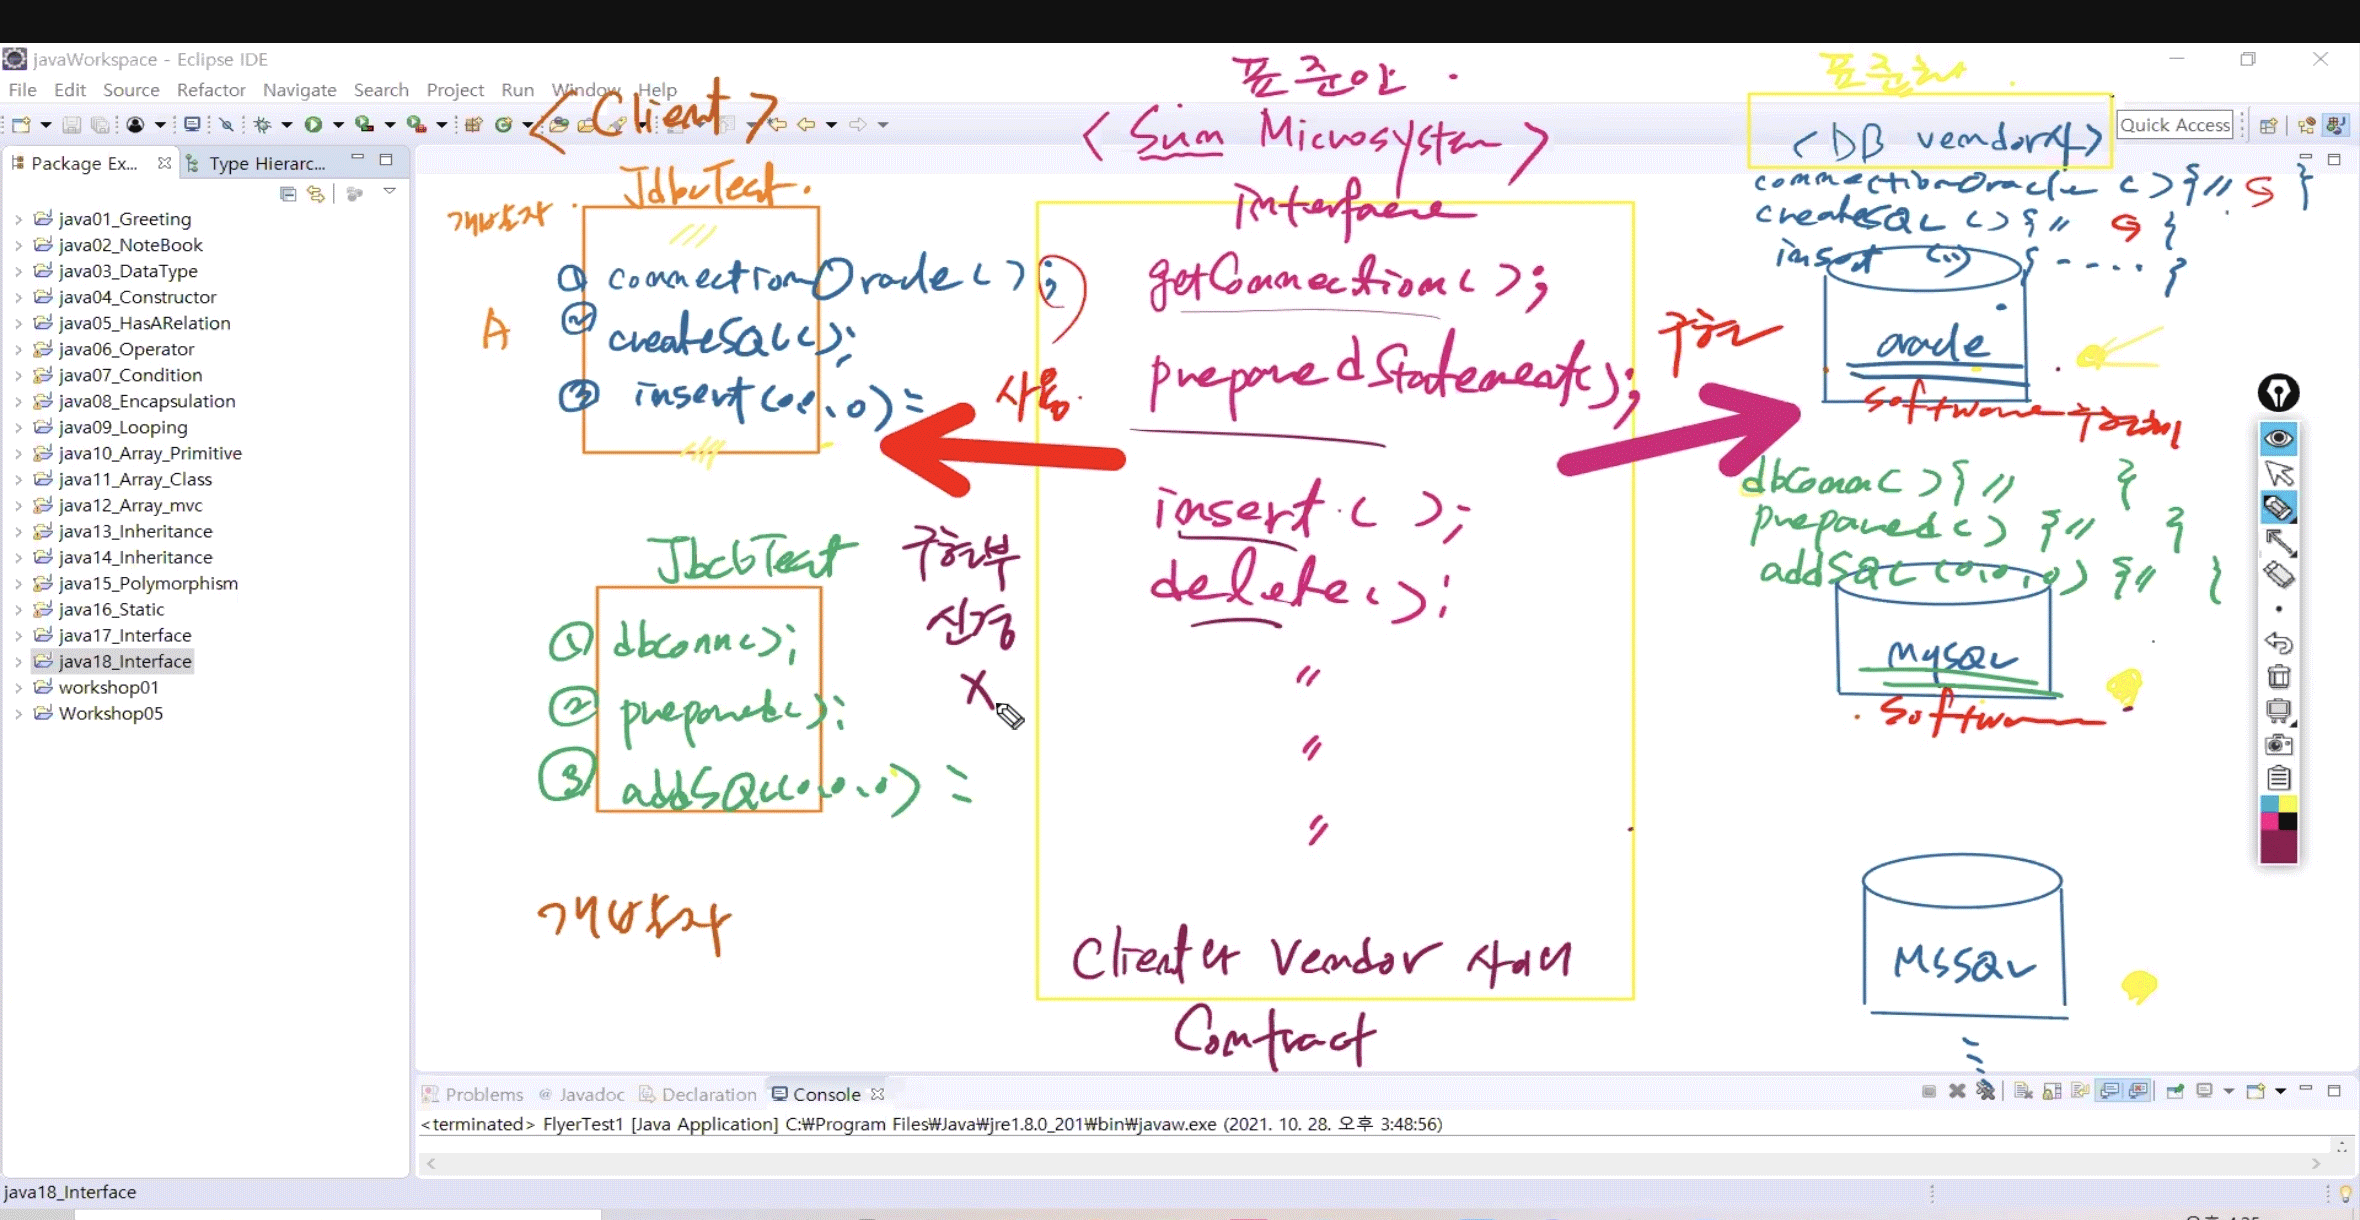 javaWorkspace - Eclipse IDE
File Edit Source Refactor Navigate Search Project Run Window Help
Quick Access
Package Ex...
Type Hierarc...
java01_Greeting
java02_NoteBook
java03_DataType
java04_Constructor
java05_HasARelation
java06_Operator
java07_Condition
java08_Encapsulation
java09_Looping
java10_Array_Primitive
java11_Array_Class
java12_Array_mvc
java13_Inheritance
java14_Inheritance
java15_Polymorphism
java16_Static
java17_Interface
java18_Interface
workshop01
Workshop05
<Client>
JdbcTest.
개발자.
A
① connectionOracle();
② createSQL();
③ insert(o,o,o)=
사용.
① dbconn();
② prepared();
③ addSQL(o,o,o)
개발자
구현부
신경
X
표준안.
<Sun Microsystem>
interface
getConnection();
preparedStatement();
insert();
delete();
"
"
"
Client와 Vendor 사이
Contract
구현
표준화.
<DB vendor사>
connectionOracle(){// }
createSQL(){//
insert(..){---- }
oracle
software 구현체
dbConn(){// }
prepared(){// }
addSQL(o,o,o){//
MySQL
MSSQL
Problems
@ Javadoc
Declaration
Console
<terminated> FlyerTest1 [Java Application] C:₩Program Files₩Java₩jre1.8.0_201₩bin₩javaw.exe (2021. 10. 28. 오후 3:48:56)
java18_Interface